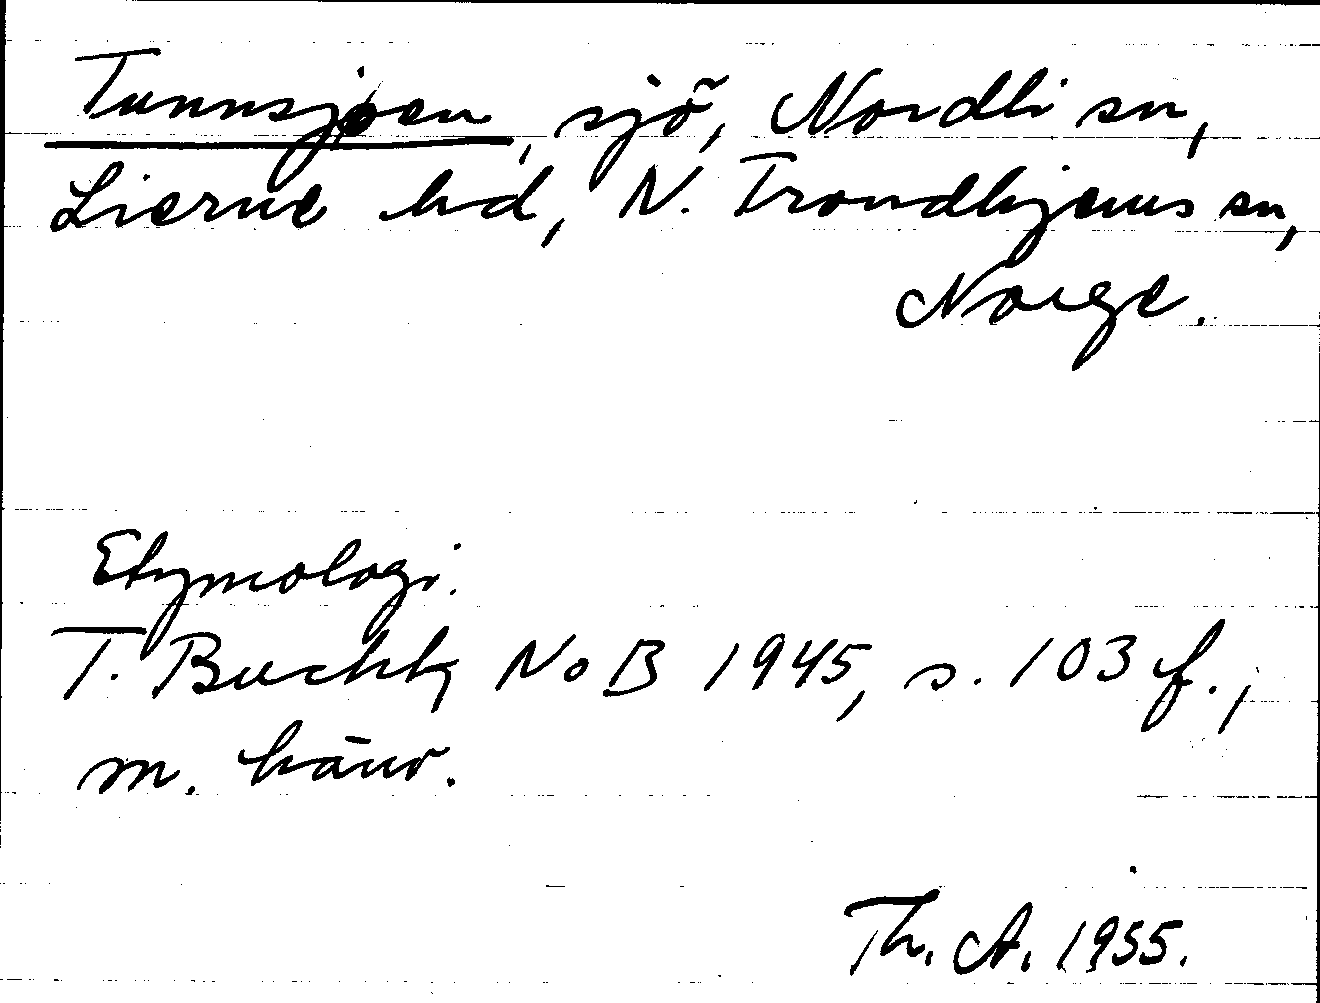 Tunnsjøen, sjö, Nordli sn,
Lierne hd, N. Trondhjems sn,
Norge.
Etymologi.
T. Bucht, NoB 1945, s. 103 f.,
m. hänv.
Th. A. 1955.